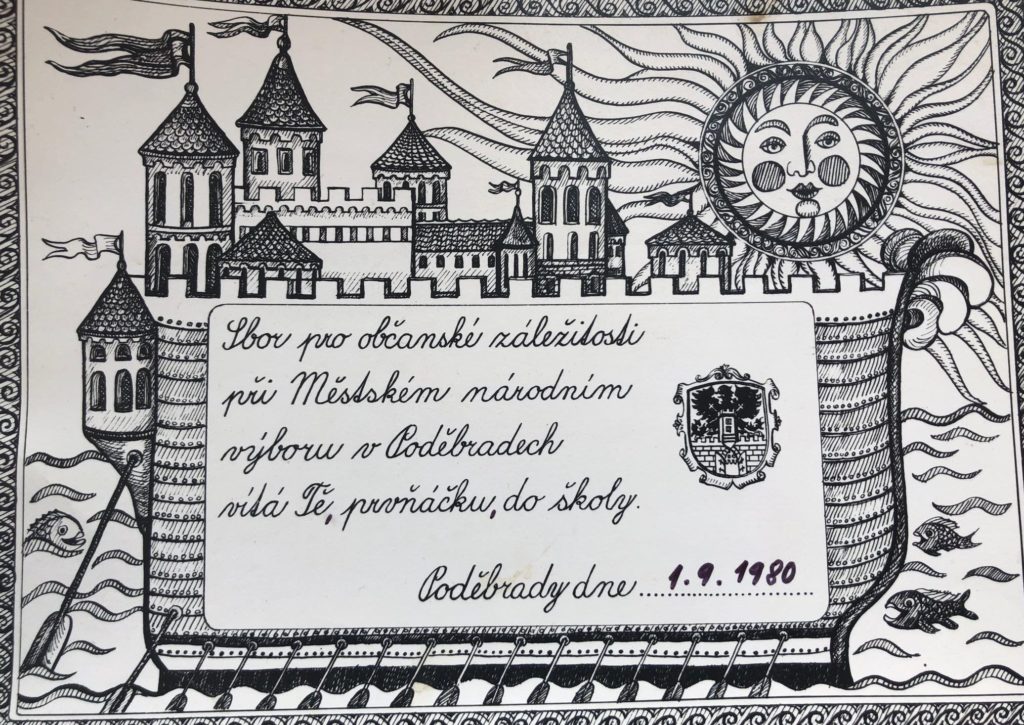 Sbor pro občanské záležitosti
při Městském národním
výboru v Poděbradech
vítá Tě, prvňáčku, do školy.
Poděbrady dne 1.9.1980